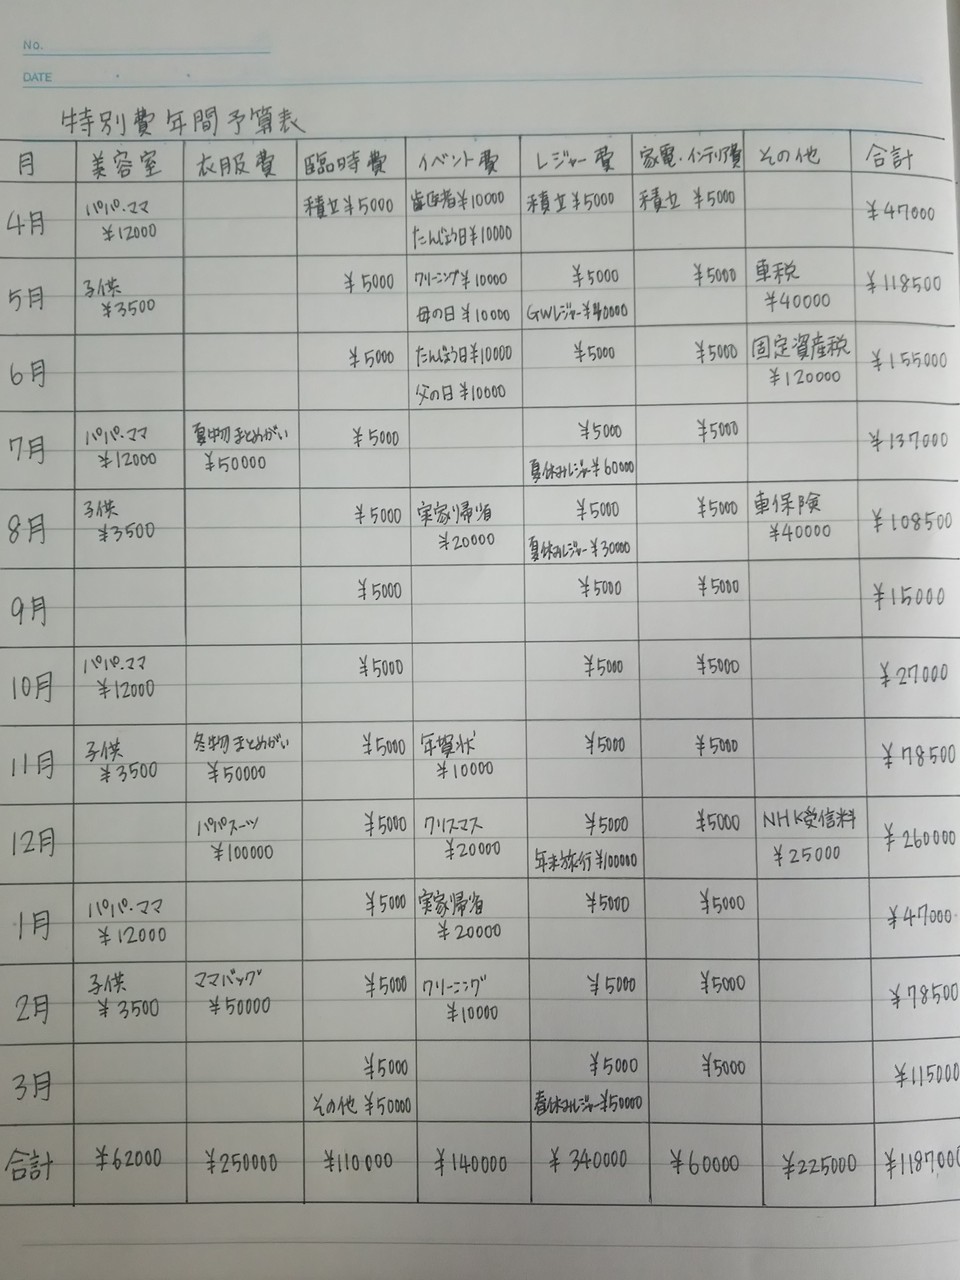 No.
DATE
特別費年間予算表
月 美容室 衣服費 臨時費 イベント費 レジャー費 家電・インテリア費 その他 合計
4月 パパ・ママ 積立¥5000 歯医者¥10000 積立¥5000 積立¥5000 ¥47000
¥12000 たんじょう日¥10000
5月 子供 ¥5000 クリーニング¥10000 ¥5000 ¥5000 車税 ¥118500
¥3500 母の日¥10000 GWレジャー¥40000 ¥40000
6月 ¥5000 たんじょう日¥10000 ¥5000 ¥5000 固定資産税 ¥155000
父の日¥10000 ¥120000
7月 パパ・ママ 夏物まとめがい ¥5000 ¥5000 ¥5000 ¥137000
¥12000 ¥50000 夏休みレジャー¥60000
8月 子供 ¥5000 実家帰省 ¥5000 ¥5000 車保険 ¥108500
¥3500 ¥20000 夏休みレジャー¥30000 ¥40000
9月 ¥5000 ¥5000 ¥5000 ¥15000
10月 パパ・ママ ¥5000 ¥5000 ¥5000 ¥27000
¥12000
11月 子供 冬物まとめがい ¥5000 年賀状 ¥5000 ¥5000 ¥78500
¥3500 ¥50000 ¥10000
12月 パパスーツ ¥5000 クリスマス ¥5000 ¥5000 NHK受信料 ¥260000
¥100000 ¥20000 年末旅行¥100000 ¥25000
1月 パパ・ママ ¥5000 実家帰省 ¥5000 ¥5000 ¥47000
¥12000 ¥20000
2月 子供 ママバッグ ¥5000 クリーニング ¥5000 ¥5000 ¥78500
¥3500 ¥50000 ¥10000
3月 ¥5000 ¥5000 ¥5000 ¥115000
その他 ¥50000 春休みレジャー¥50000
合計 ¥62000 ¥250000 ¥110000 ¥140000 ¥340000 ¥60000 ¥225000 ¥1187000